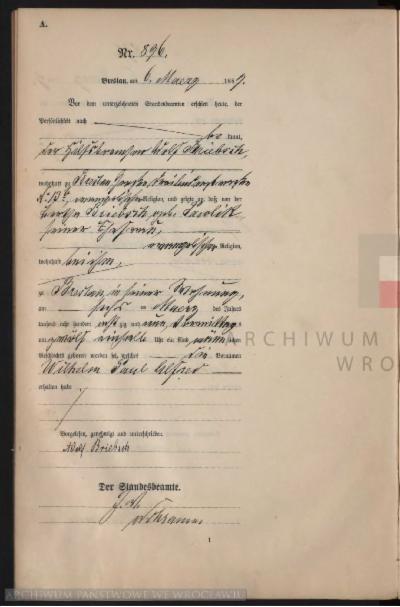 A.
Nr. 896.
Breslau, am 6. Maerz 1889.
Vor dem unterzeichneten Standesbeamten erschien heute, der
Persönlichkeit nach
be kannt,
der Adolf
wohnhaft zu Breslau
evangelischer Religion, und zeigte an, daß von der
geb.
seiner Ehefrau,
evangelischer Religion,
wohnhaft bei ihm,
zu Breslau, in seiner Wohnung,
am Maerz des Jahres
tausend acht hundert acht zig und neun Vormittags
um zwölf einhalb Uhr ein Kind männ lichen
Geschlechts geboren worden sei, welches die Vornamen
Wilhelm Paul Alfred
erhalten habe.
Vorgelesen, genehmigt und unterschrieben
Adolf
Der Standesbeamte.
1
ARCHIWUM
WRO
ARCHIWUM PAŃSTWOWE WE WROCŁAWIU